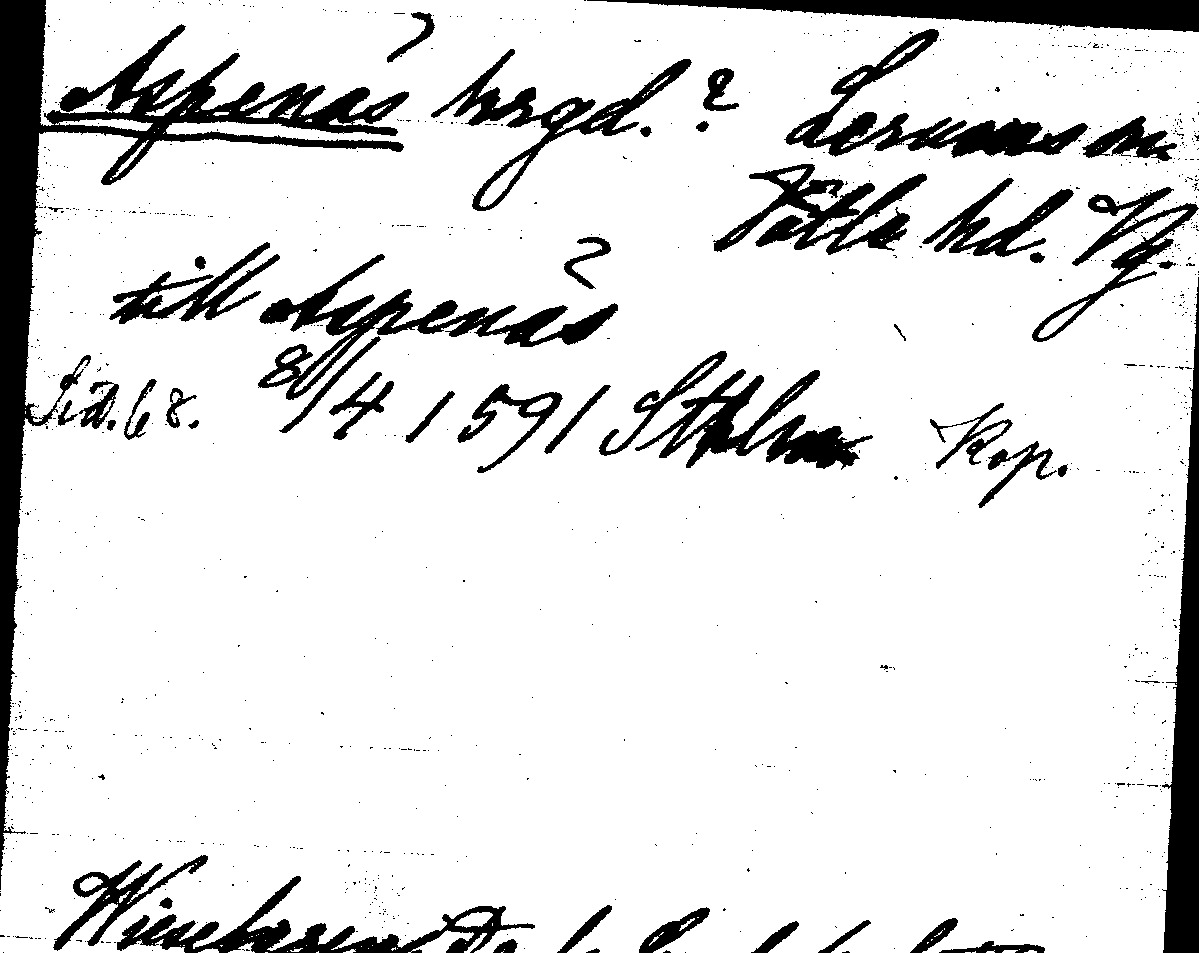 Aspenäs hrgd. ? Lerums sn.
Vättle hd. Vg.
till Aspenäs
Sid. 68. 8/4 1591 Sthlm Kop.